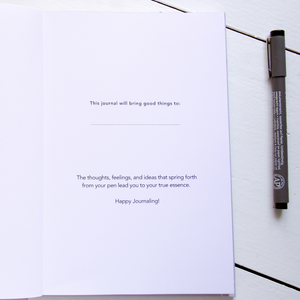 This journal will bring good things to:
The thoughts, feelings, and ideas that spring forth
from your pen lead you to your true essence.
Happy Journaling!